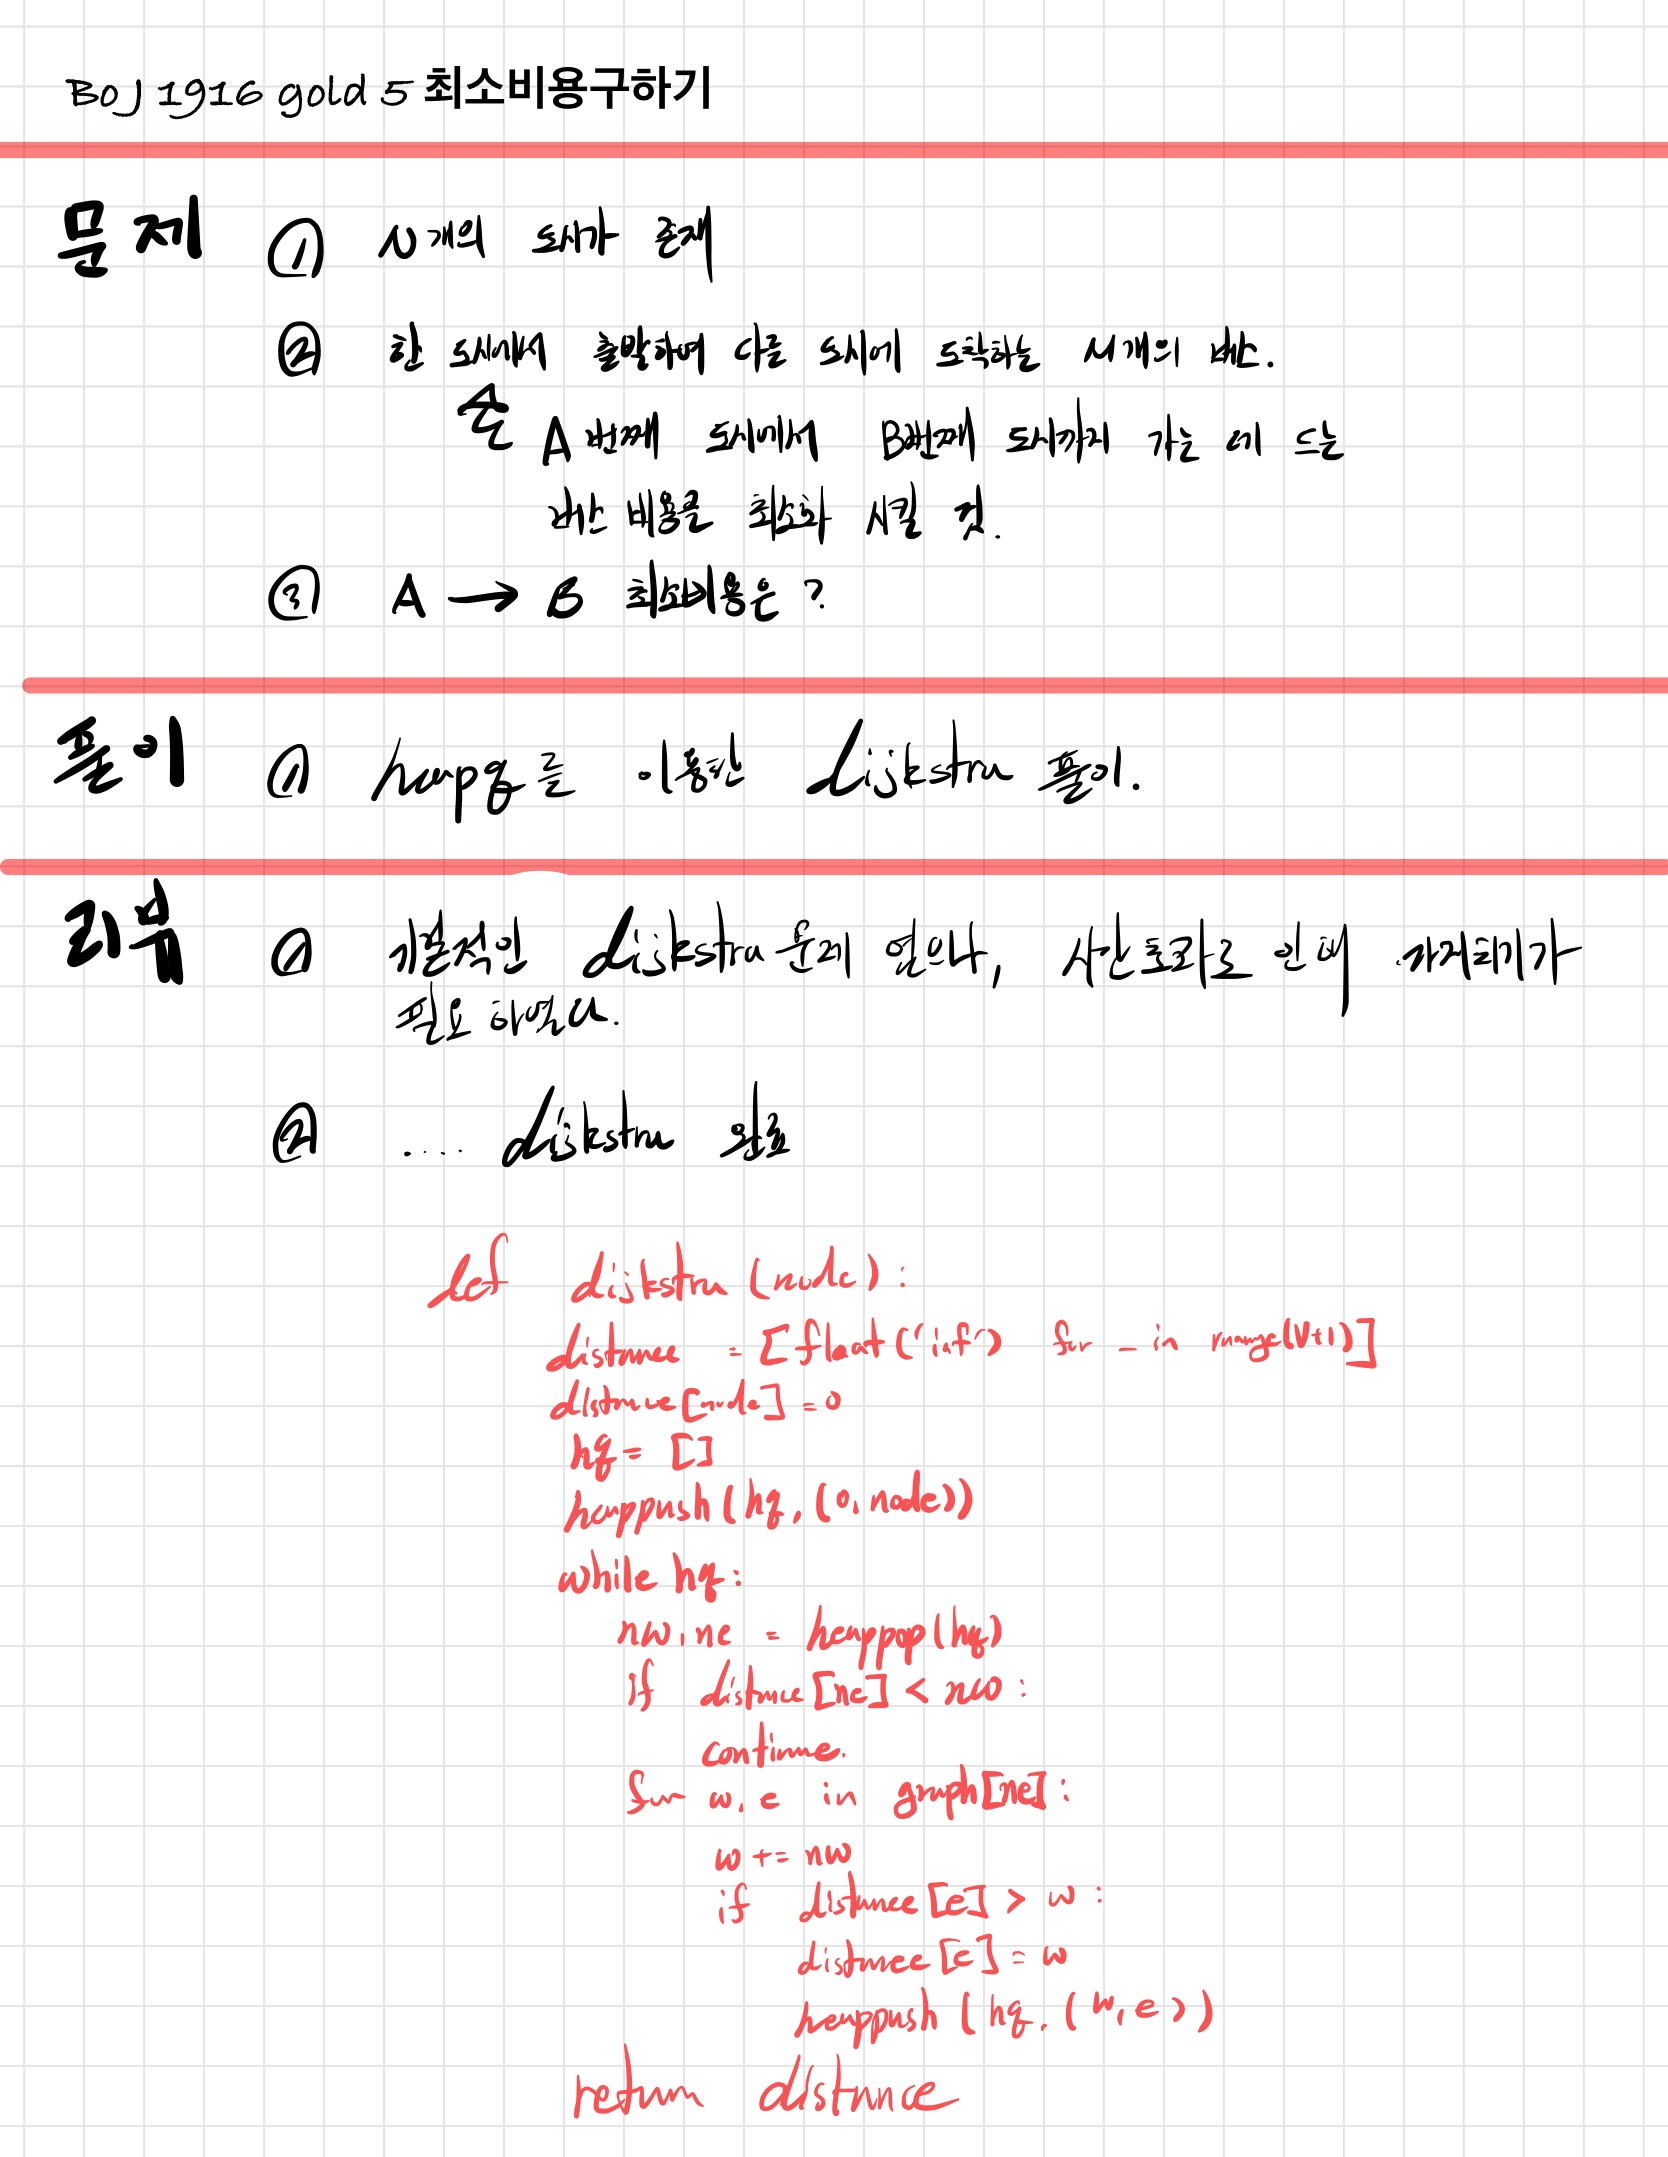 BOJ 1916 gold 5 최소비용구하기
문제 ① N개의 도시가 존재
② 한 도시에서 출발하여 다른 도시에 도착하는 M개의 버스.
단 A번째 도시에서 B번째 도시까지 가는 데 드는
버스 비용을 최소화 시킬 것.
③ A → B 최소비용은?
풀이 ① heapq를 이용한 dijkstra 풀이.
리뷰 ① 기본적인 dijkstra 문제 였으나, 시간초과로 인해 가지치기가
필요 하였다.
② .... dijkstra 완료
def dijkstra (node):
distance = [float('inf') for _ in range(V+1)]
distance[node] = 0
hq = []
heappush(hq, (0, node))
while hq:
nw, ne = heappop(hq)
if distance[ne] < nw:
continue.
for w, e in graph[ne]:
w += nw
if distance[e] > w:
distance[e] = w
heappush (hq, (w, e))
return distance